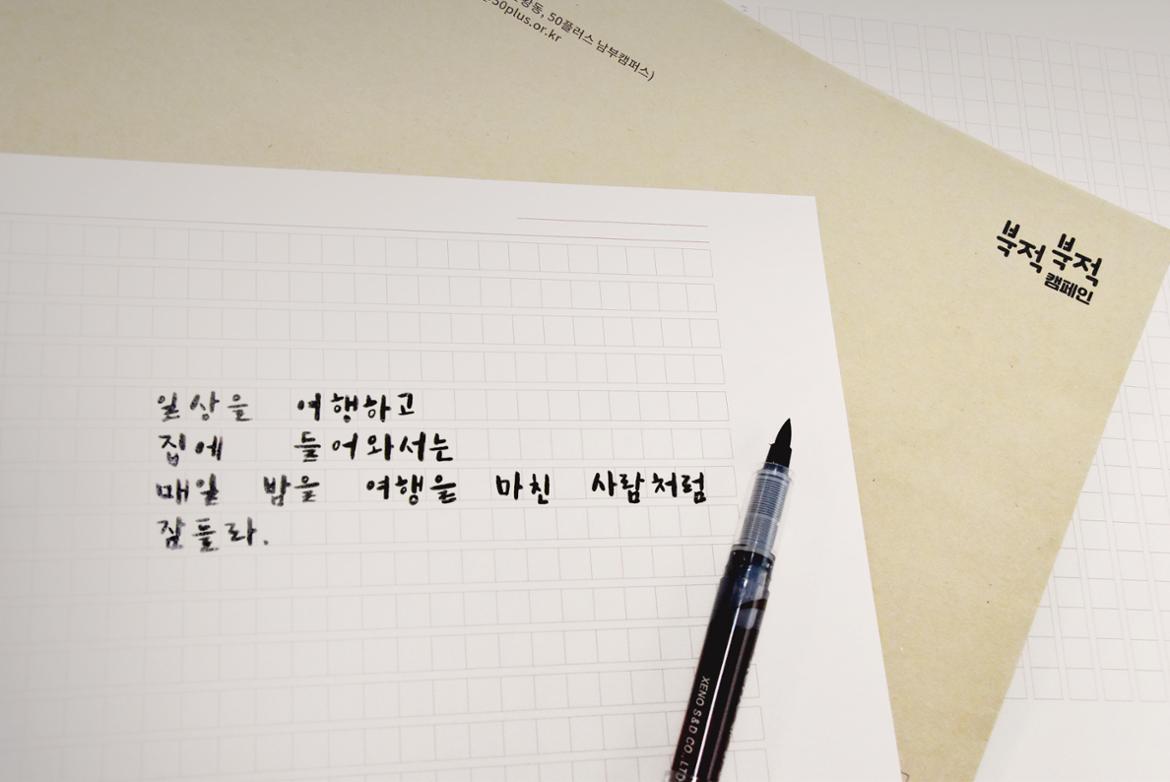 50플러스 남부캠퍼스)
50plus.or.kr
북적북적
캠페인
일상을 여행하고
집에 들어와서는
매일 밤을 여행을 마친 사람처럼
잠들라.
XENO S&D CO. LTD